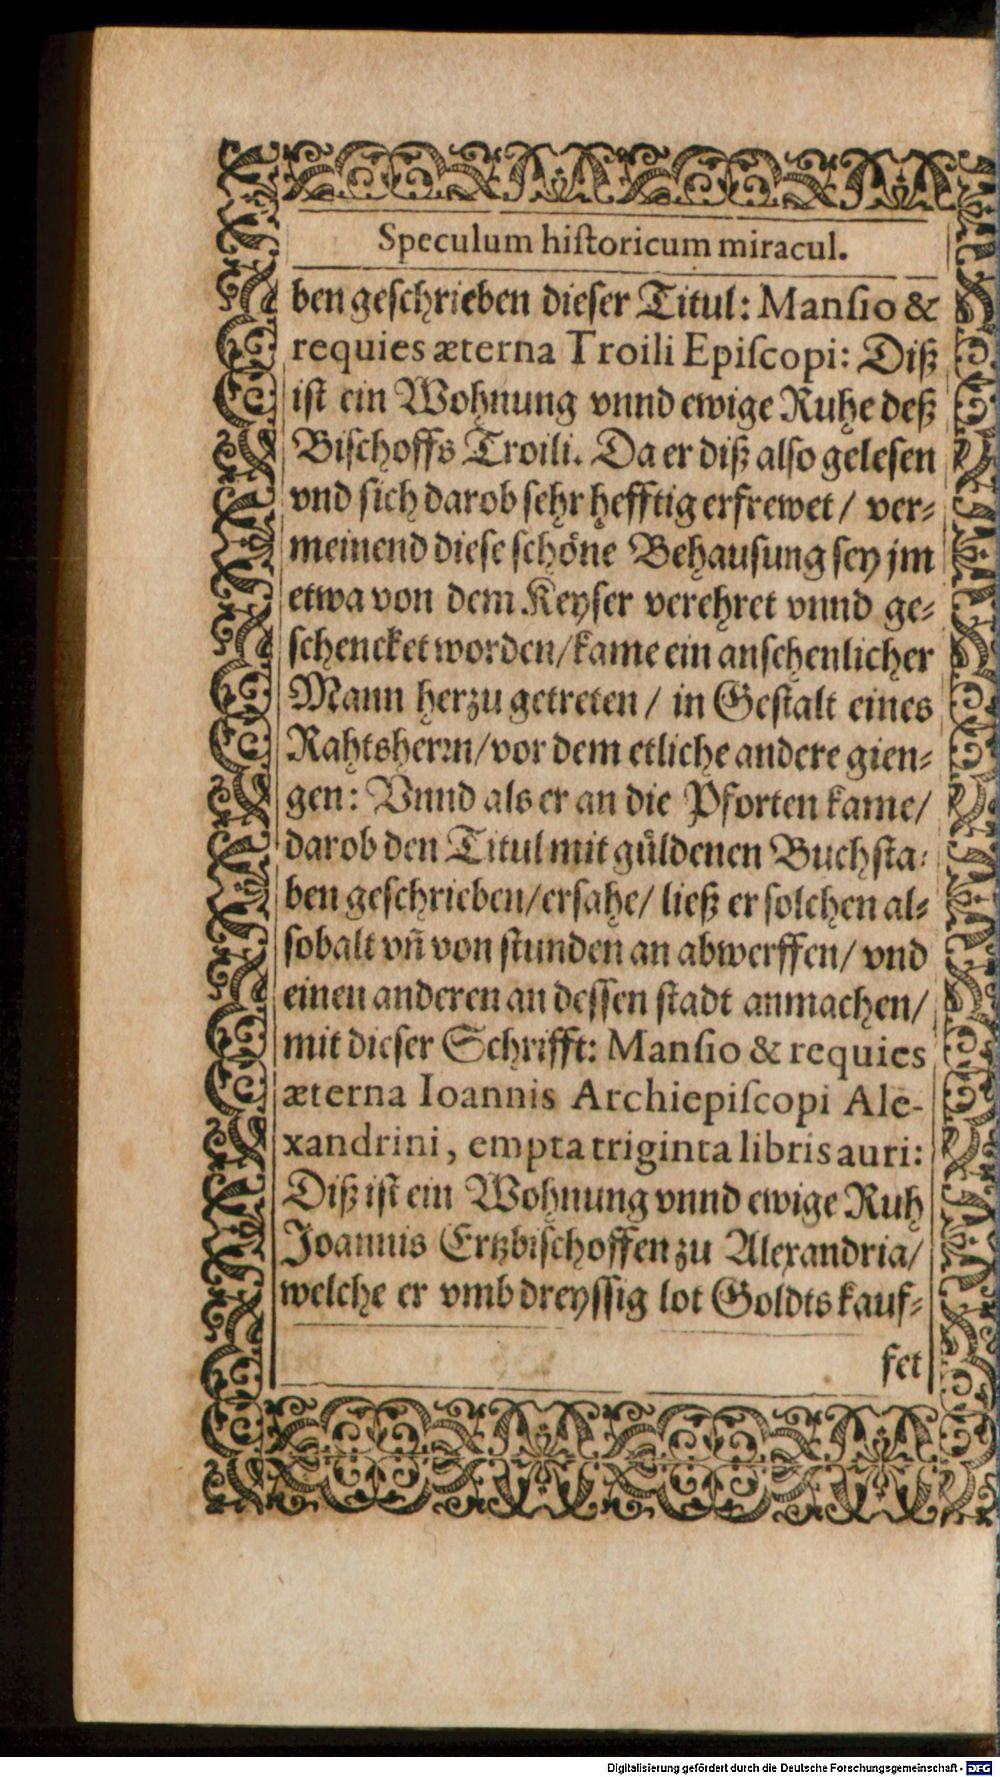 Speculum hiſtoricum miracul.
ben geſchrieben dieſer Titul: Manſio &
requies æterna Troili Epiſcopi: Diß
iſt ein Wohnung vnnd ewige Ruhe deß
Biſchoffs Troili. Da er diß alſo geleſen
vnd ſich darob ſehr hefftig erfrewet / ver⸗
meinend dieſe ſchöne Behauſung ſey jm
etwa von dem Keyſer verehret vnnd ge⸗
ſchencket worden/kame ein anſehenlicher
Mann herzu getreten / in Geſtalt eines
Rahtsherꝛn/vor dem etliche andere gien⸗
gen: Vnnd als er an die Pforten kame/
darob den Titul mit güldenen Buchſta⸗
ben geſchrieben/erſahe/ ließ er ſolchen al⸗
ſobalt vñ von ſtunden an abwerffen/ vnd
einen anderen an deſſen ſtadt anmachen/
mit dieſer Schrifft: Manſio & requies
æterna Ioannis Archiepiſcopi Ale-
xandrini, empta triginta libris auri:
Diß iſt ein Wohnung vnnd ewige Ruh
Joannis Ertzbiſchoffen zu Alexandria/
welche er vmb dreyſſig lot Goldts kauf⸗
fet
Digitalisierung gefördert durch die Deutsche Forschungsgemeinschaft - DFG